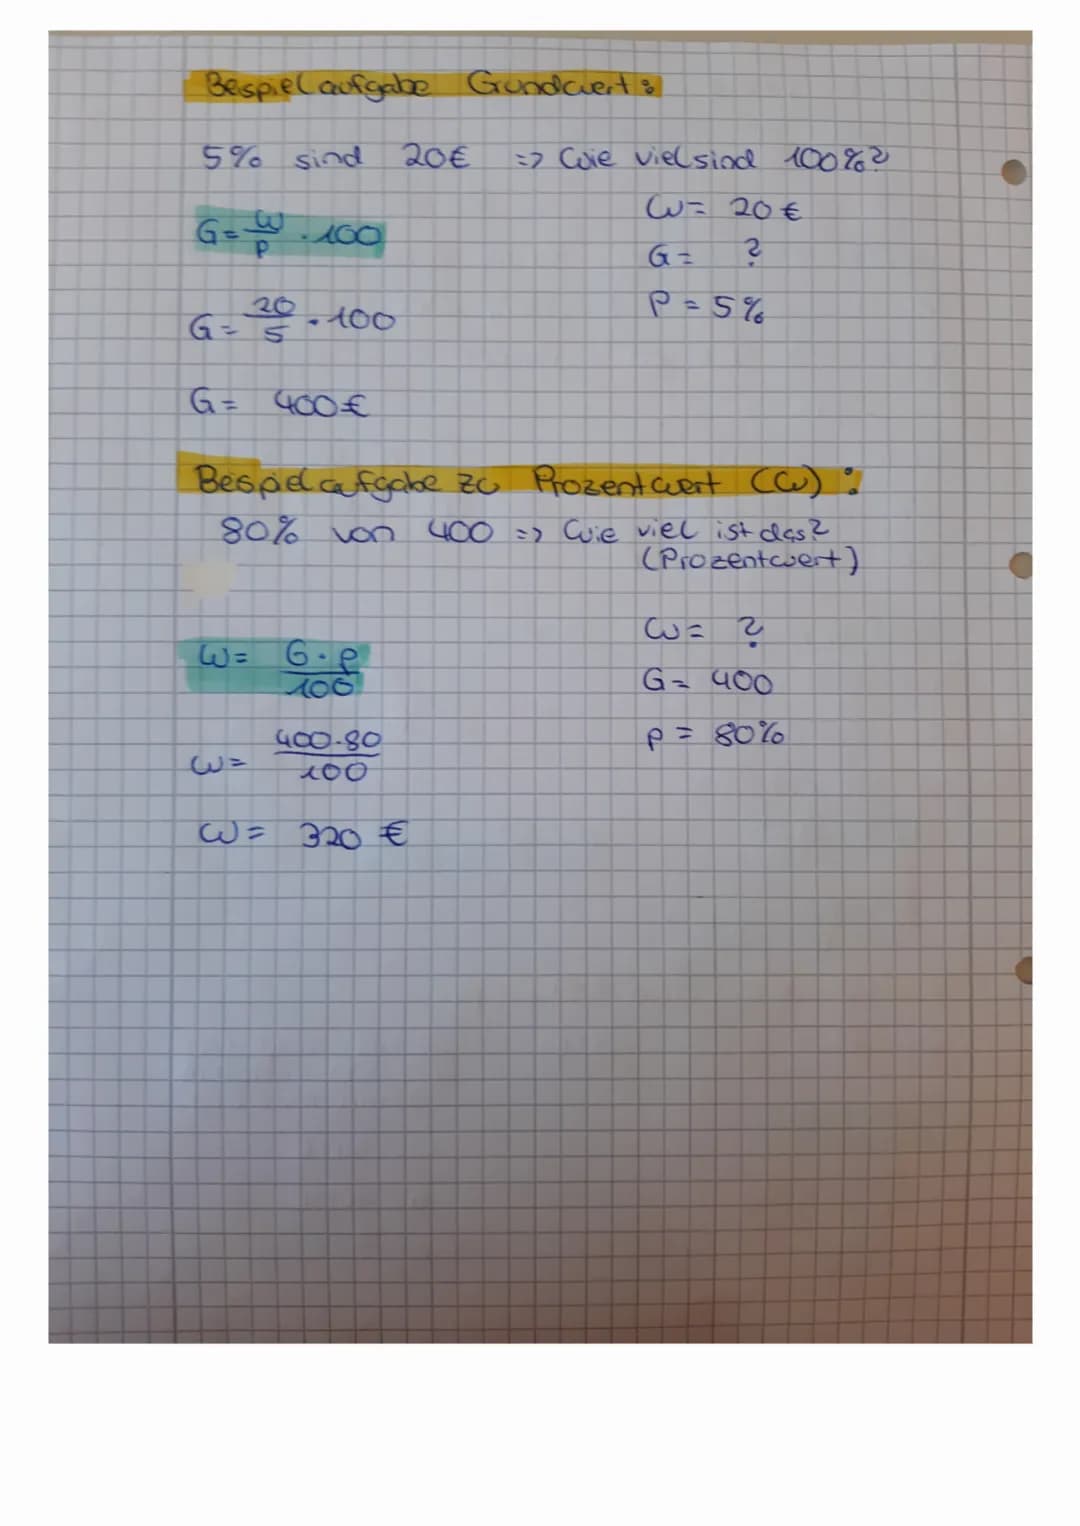 Beispielaufgabe Grundwert:
5% sind 20€ => Wie viel sind 100%?
W = 20 €
G = W/p · 100
G = ?
P = 5%
G = 20/5 · 100
G = 400€
Beispielaufgabe zu Prozentwert (W):
80% von 400 => Wie viel ist das?
(Prozentwert)
W = ?
W = G·p/100
G = 400
p = 80%
W = 400·80/100
W = 320 €